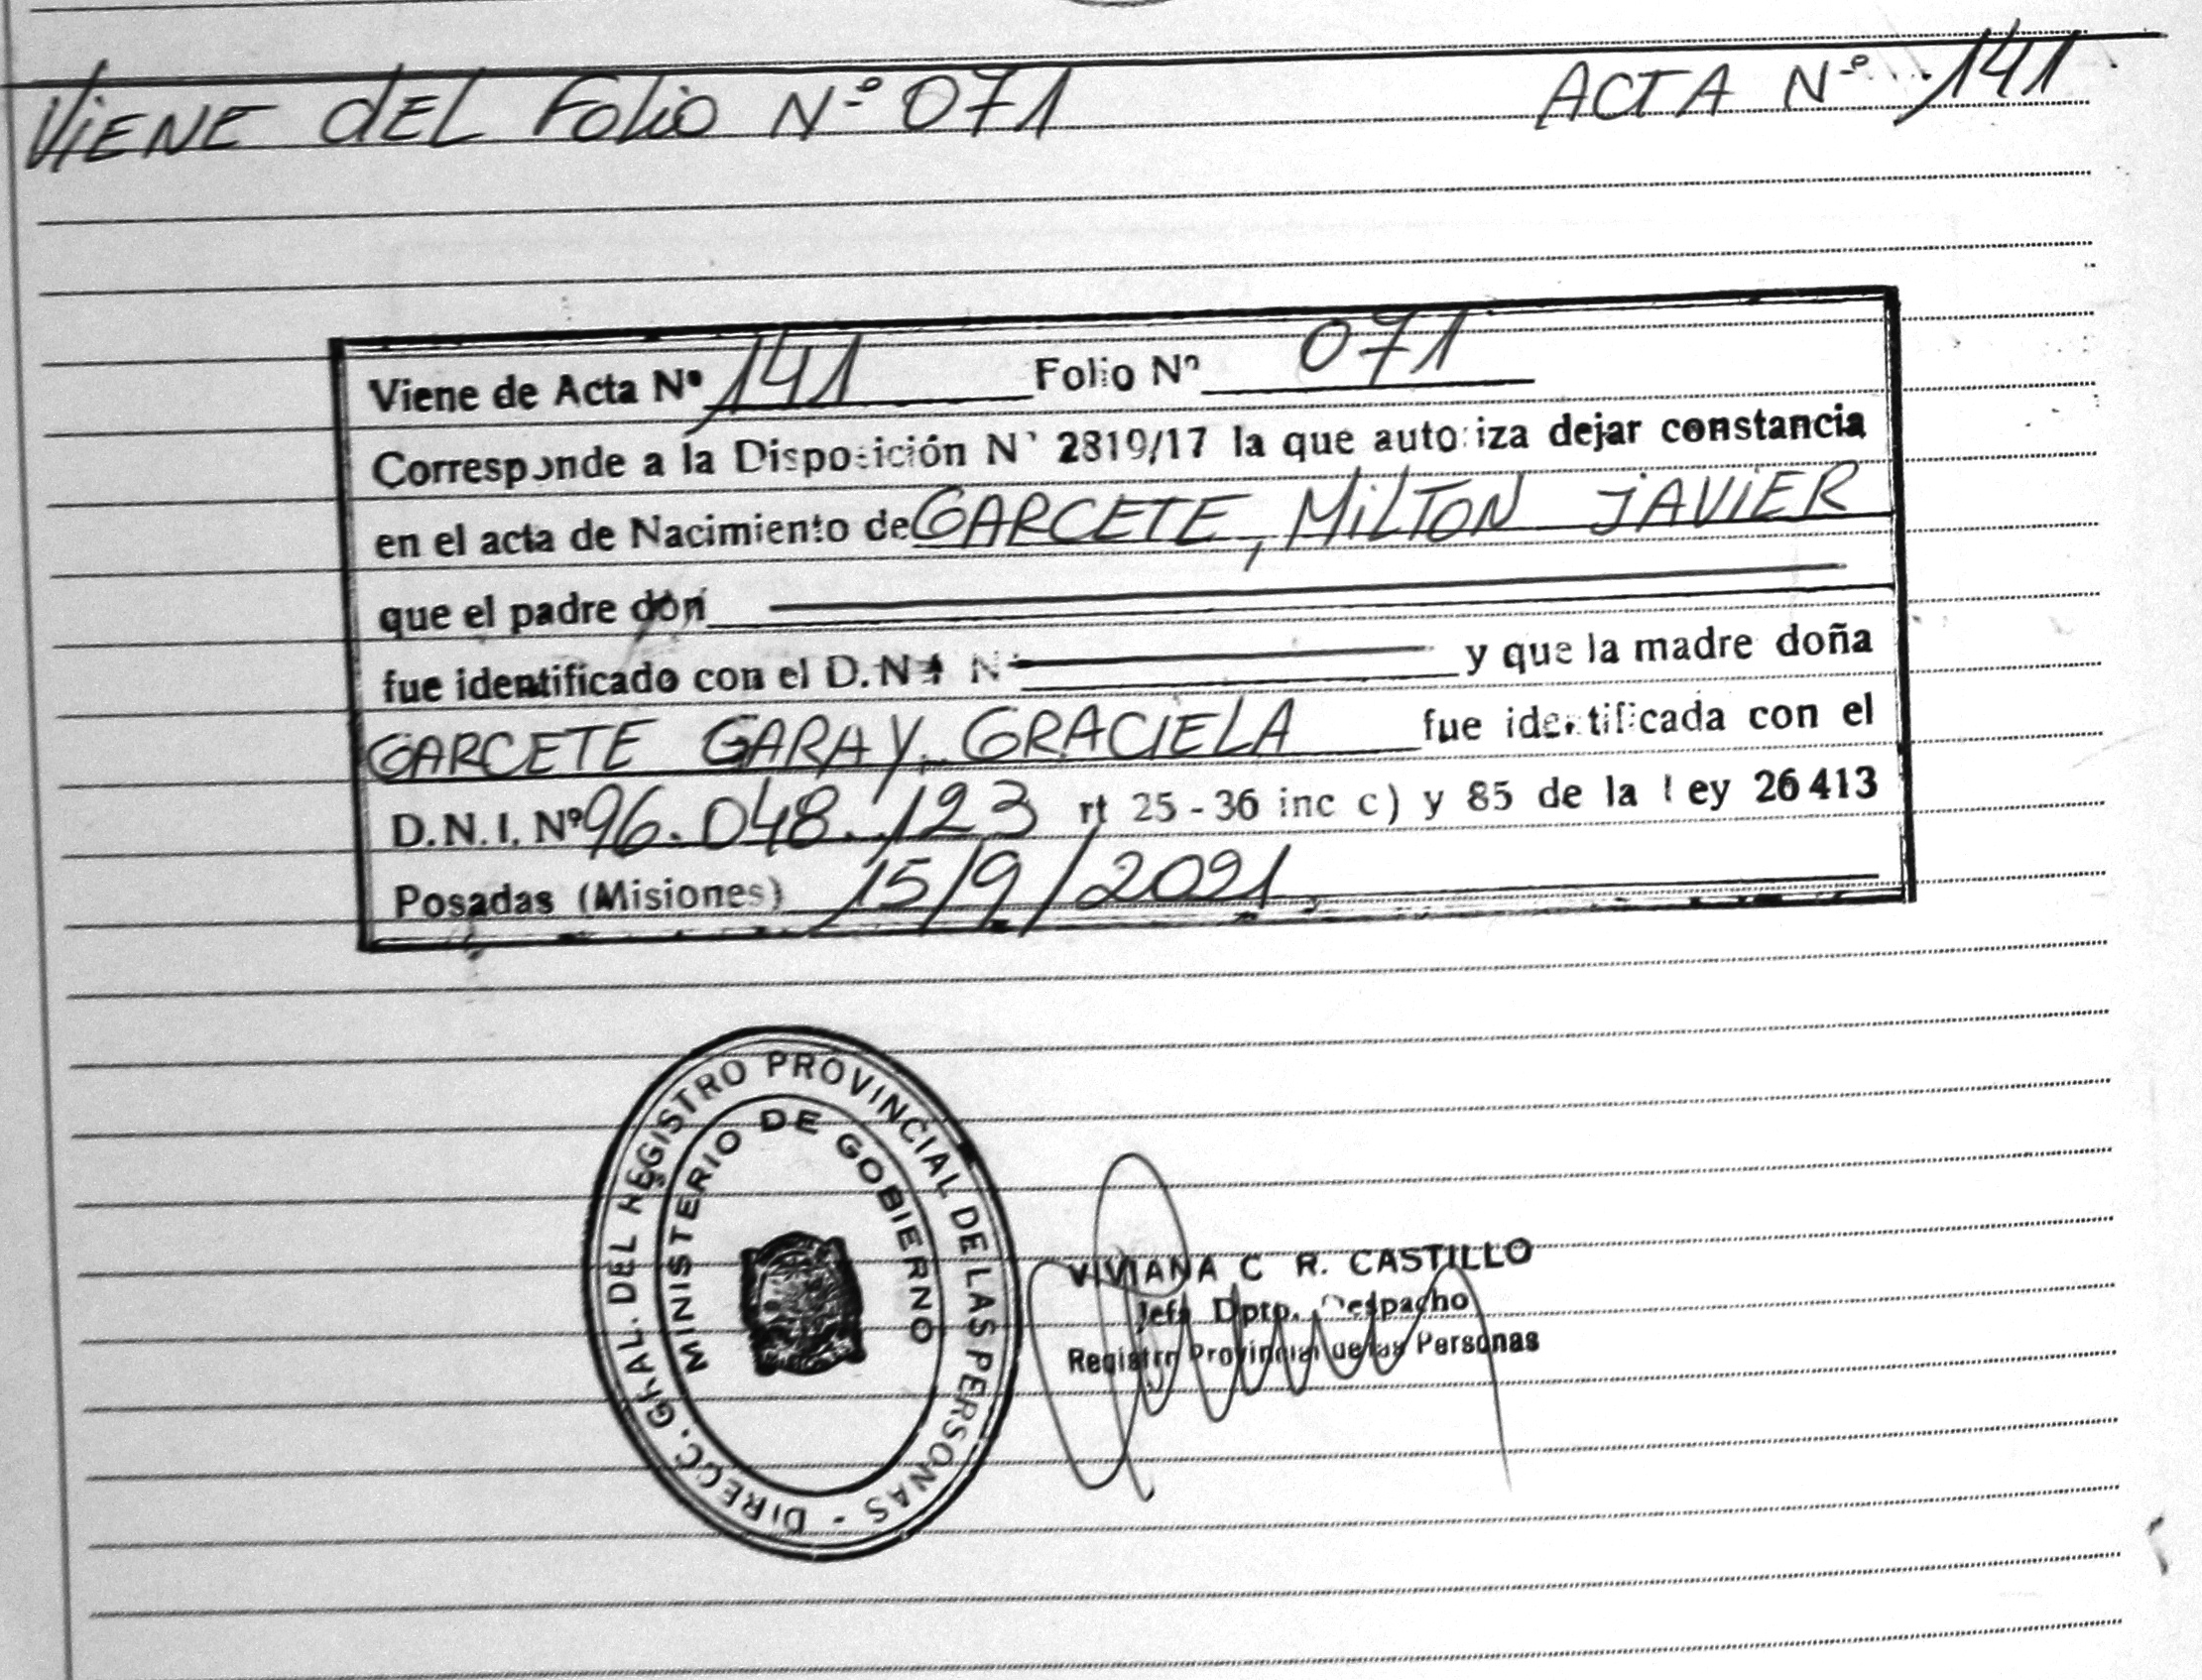 VIENE DEL FOLIO Nº 071 ACTA Nº 141
Viene de Acta Nº 141 Folio Nº 071
Corresponde a la Disposición Nº 2819/17 la que autoriza dejar constancia
en el acta de Nacimiento de GARCETE, MILTON JAVIER
que el padre don
fue identificado con el D.N.I Nº y que la madre doña
GARCETE GARAY, GRACIELA fue identificada con el
D.N.I. Nº 96.048.123 rt 25 - 36 inc c) y 85 de la ley 26413
Posadas (Misiones) 15/9/2021
DIRECC. GRAL. DEL REGISTRO PROVINCIAL DE LAS PERSONAS -
MINISTERIO DE GOBIERNO
VIVIANA C R. CASTILLO
Jefa Dpto. Despacho
Registro Provincial de las Personas